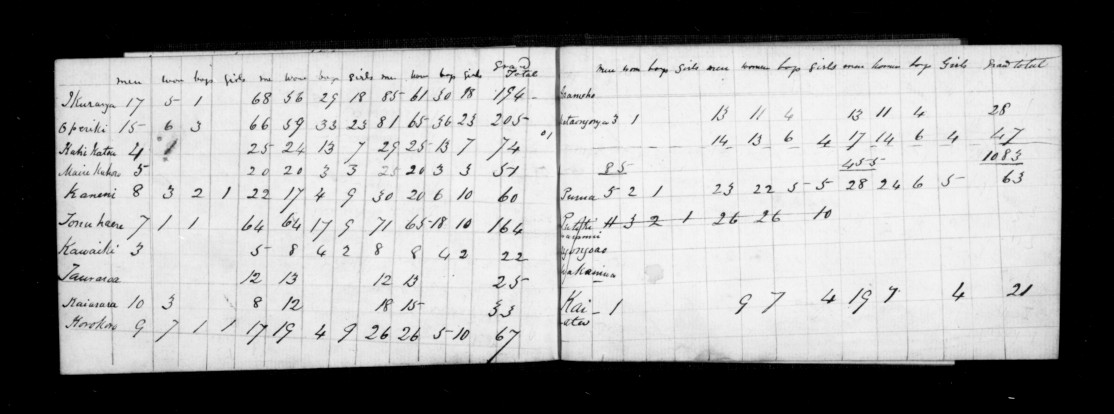 men wom boys girls me wom boys girls me wom boys girls Grand Total
17 5 1 68 56 29 18 85 61 30 18 194
Oporiki 15 6 3 66 59 33 23 81 65 36 23 205
4 1 25 24 13 7 29 25 13 7 74
5 20 20 3 3 25 20 3 3 51
Kaneni 8 3 2 1 22 17 4 9 30 20 6 10 60
7 1 1 64 64 17 9 71 65 18 10 164
Kawaiki 3 5 8 4 2 8 8 4 2 22
12 13 12 13 25
10 3 8 12 18 15 33
Horokoro 9 7 1 1 17 19 4 9 26 26 5 10 67
men wom boys girls men women boys girls men women boys Girls Grand total
3 1 13 11 4 13 11 4 28
14 13 6 4 17 14 6 4 47
85 455 1083
Purua 5 2 1 23 22 5 5 28 24 6 5 63
4 3 2 1 26 26 10
Kai 1 9 7 4 19 7 4 21